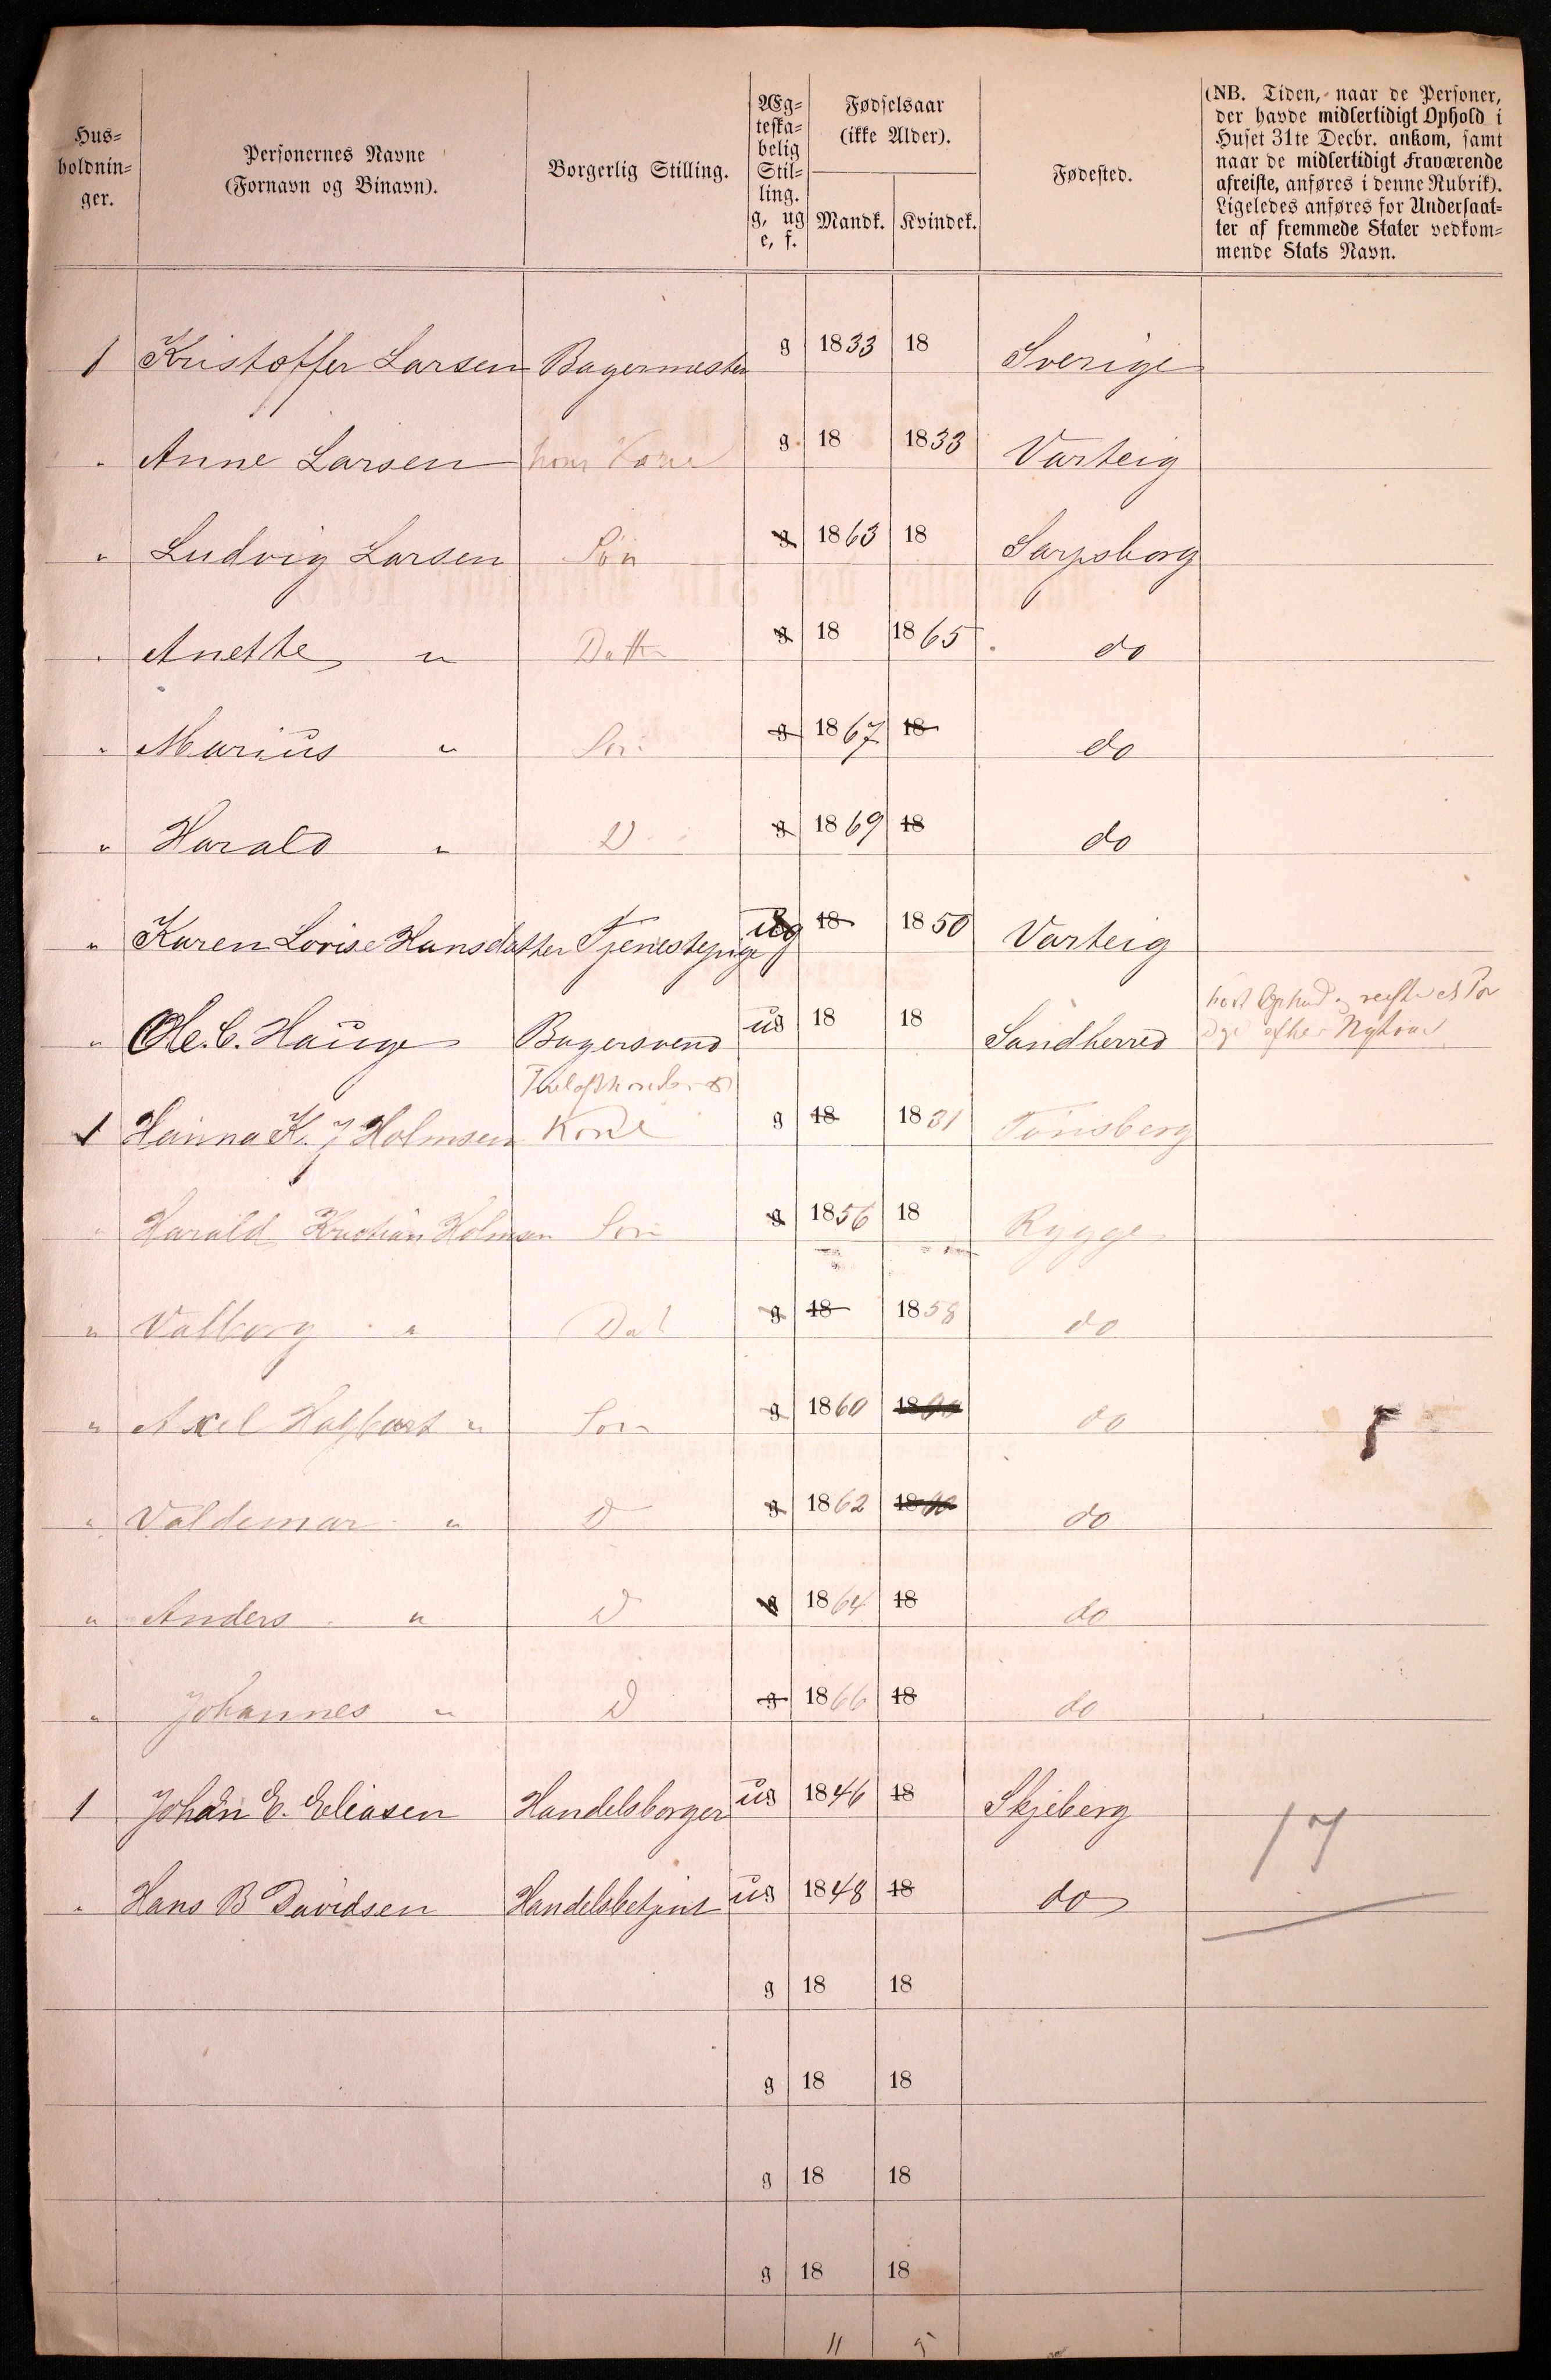 Hus-
holdnin-
ger.
Personernes Navne
(Fornavn og Binavn).
Borgerlig Stilling.
Æg-
teska-
belig
Stil-
ling.
g, ug
e, f.
Fødselsaar
(ikke Alder).
Mandk. Kvindek.
Fødested.
(NB. Tiden, naar de Personer,
der havde midlertidigt Ophold i
Huset 31te Decbr. ankom, samt
naar de midlertidigt Fraværende
afreiste, anføres i denne Rubrik).
Ligeledes anføres for Undersaat-
ter af fremmede Stater vedkom-
mende Stats Navn.
1 Kristoffer Larsen Bagermester g 1833 18 Sverige
" Anne Larsen hans Kone g 18 1833 Varteig
" Ludvig Larsen Søn g 1863 18 Sarpsborg
" Anette " Datter g 18 1865 do
" Marius " Søn g 1867 18 do
" Harald " D g 1869 18 do
" Karen Lovise Hansdatter Tjenestepige ug 18 1850 Varteig
" Ole. C. Hauge Bagersvend ug 18 18 Sandherred
efter Nytaar
1 Hanna K. J Holmsen Kone g 18 1831 Tønsberg
" Harald Kristian Holmsen Søn g 1856 18 Rygge
" Valborg " Dat g 18 1858 do
" Axel Hagbart " Søn g 1860 18 do
" Valdemar " D g 1862 18 do
" Anders " D g 1864 18 do
" Johannes " D g 1866 18 do
1 Johan E. Eliasen Handelsborger ug 1846 18 Skjeberg
" Hans B Davidsen Handelsbetjent ug 1848 18 do
17
g 18 18
g 18 18
g 18 18
g 18 18
11 5